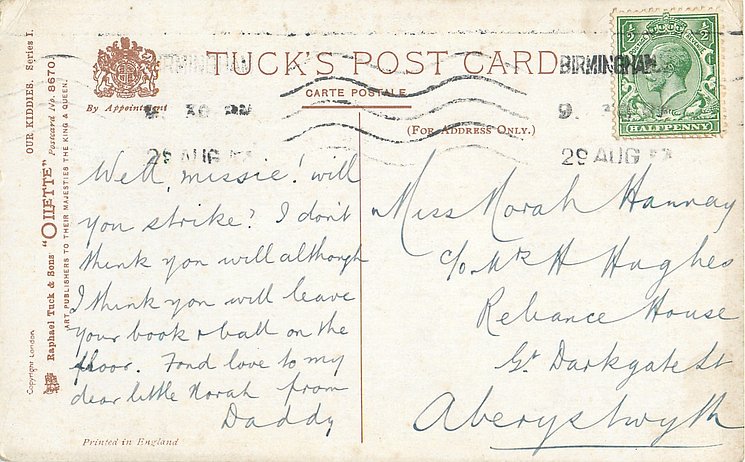 TUCK'S POST CARD
CARTE POSTALE
(FOR ADDRESS ONLY.)
By Appointment
OUR KIDDIES. Series I.
Raphael Tuck & Sons' "OILETTE" Postcard No. 8670.
ART PUBLISHERS TO THEIR MAJESTIES THE KING & QUEEN.
Copyright London
BIRMINGHAM
29 AUG
29 AUG
HALFPENNY
Well, missie! will
you strike? I don't
think you will although
I think you will leave
your book & ball on the
floor. Fond love to my
dear little Norah from
Daddy
Printed in England
Miss Norah Hannay
c/o Mrs H Hughes
Reliance House
Gt Darkgate St
Aberystwyth